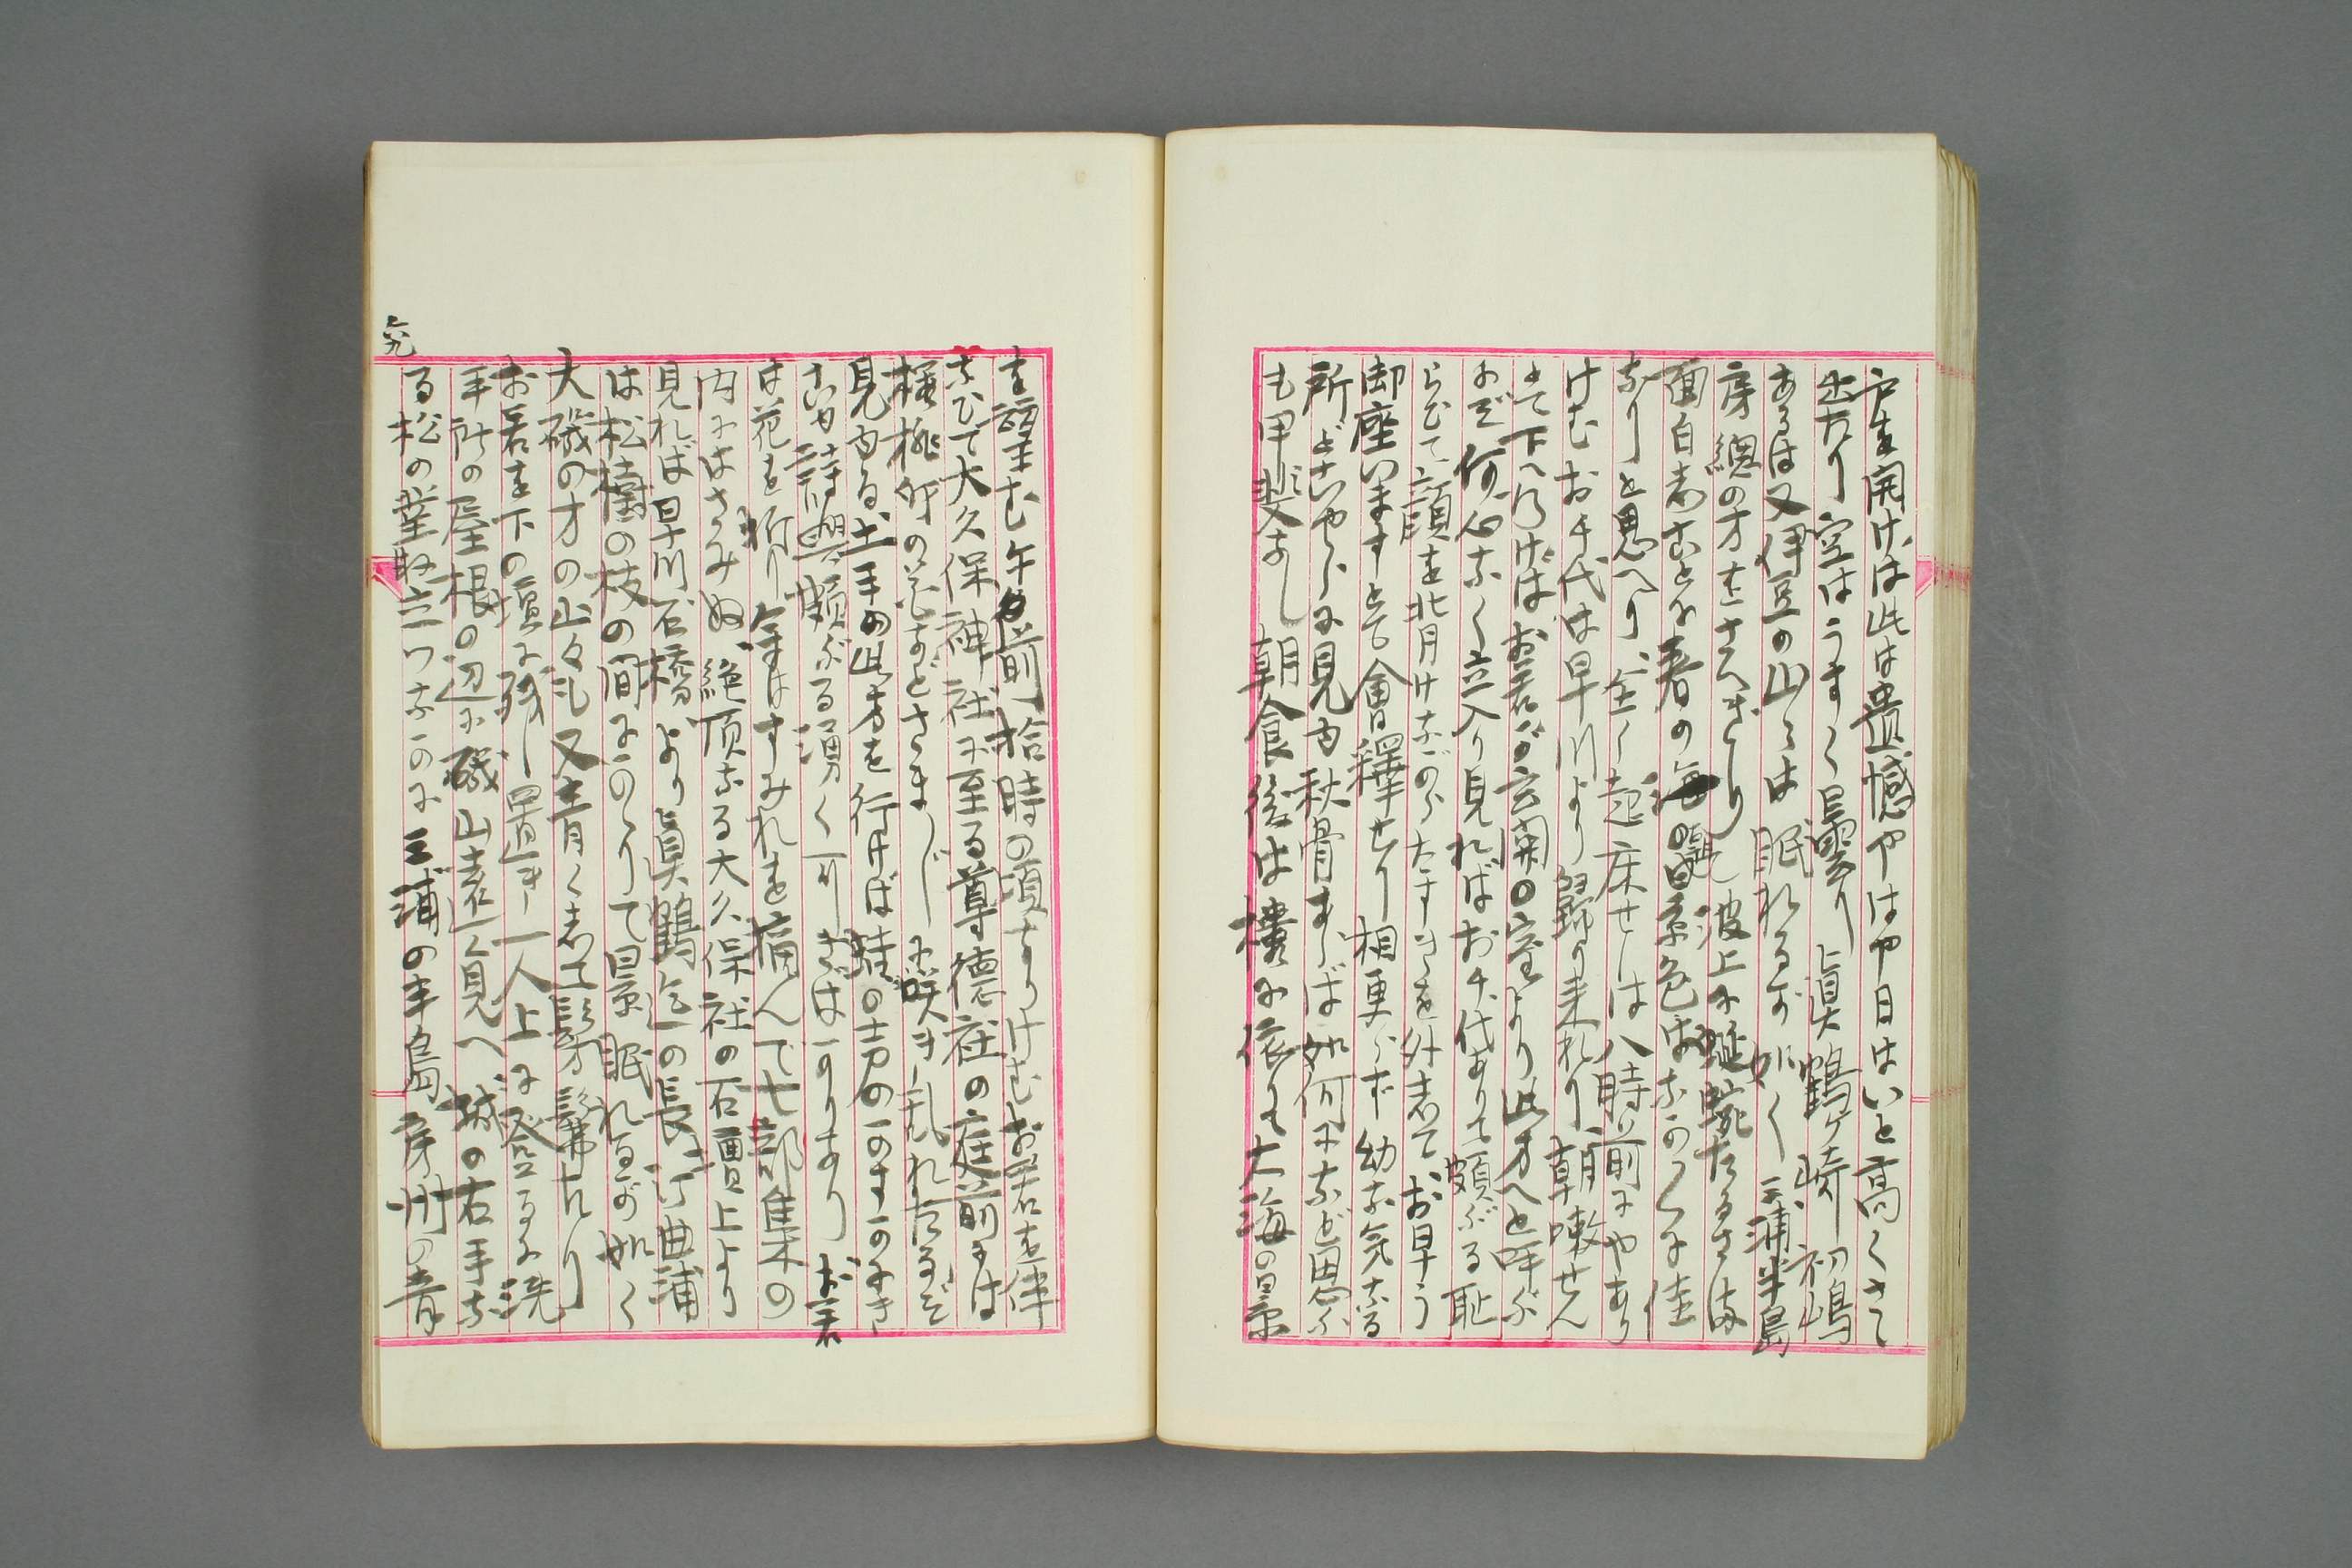 戸を開けば此は遺憾やはや日はいと高くさて
出たり空はうすく曇り真鶴ヶ崎初嶋
あるは又伊豆の山々は眠れるが如く三浦半島
房総の方をさへぎり波上に蜒蜿たるさま
面白きことよ春の海の景色はなかなかに佳
なりと思へり、全く起床せしは八時前にやあり
けむお千代は早川より帰り来れり、朝嗽せん
とて下へ行けばお若が玄関の室より此方へと呼ぶ
おぞ何心なく立入り見ればお千代ありて頗ぶる恥
らひて顔を背けながらたすきを外してお早う
御座いますとて会釈せり相更らず幼な気なる
所どこやらに見ゆ秋骨まさば如何になど思ふ
も甲斐なし朝食後は楼に依りて大海の景
を望む午前拾時の頃なりけむお若を伴
なひて大久保神社に至る尊徳庄の庭前には
桜桃などさまじに咲き乱れたるぞ
見ゆる土手の此方を行けば蛙の声のかすかにき
こゆ詩興頗ぶる湧く可きばかりなり お若
は花を折り余はすみれを摘んで七部集の
内にはさみぬ、絶頂なる大久保社の石置上より
見れば早川石橋より真鶴迄の長汀曲浦
は松樹の枝の間にのこりて景眠れるが如く
大磯の方の山々も又青く老て髣髴たり
お若を下の壇に残し置き一人上に登るに洗
手所の屋根の辺に磯山遠く見へ、城の右手な
る松の葉越にわづかに三浦の半島房州の青